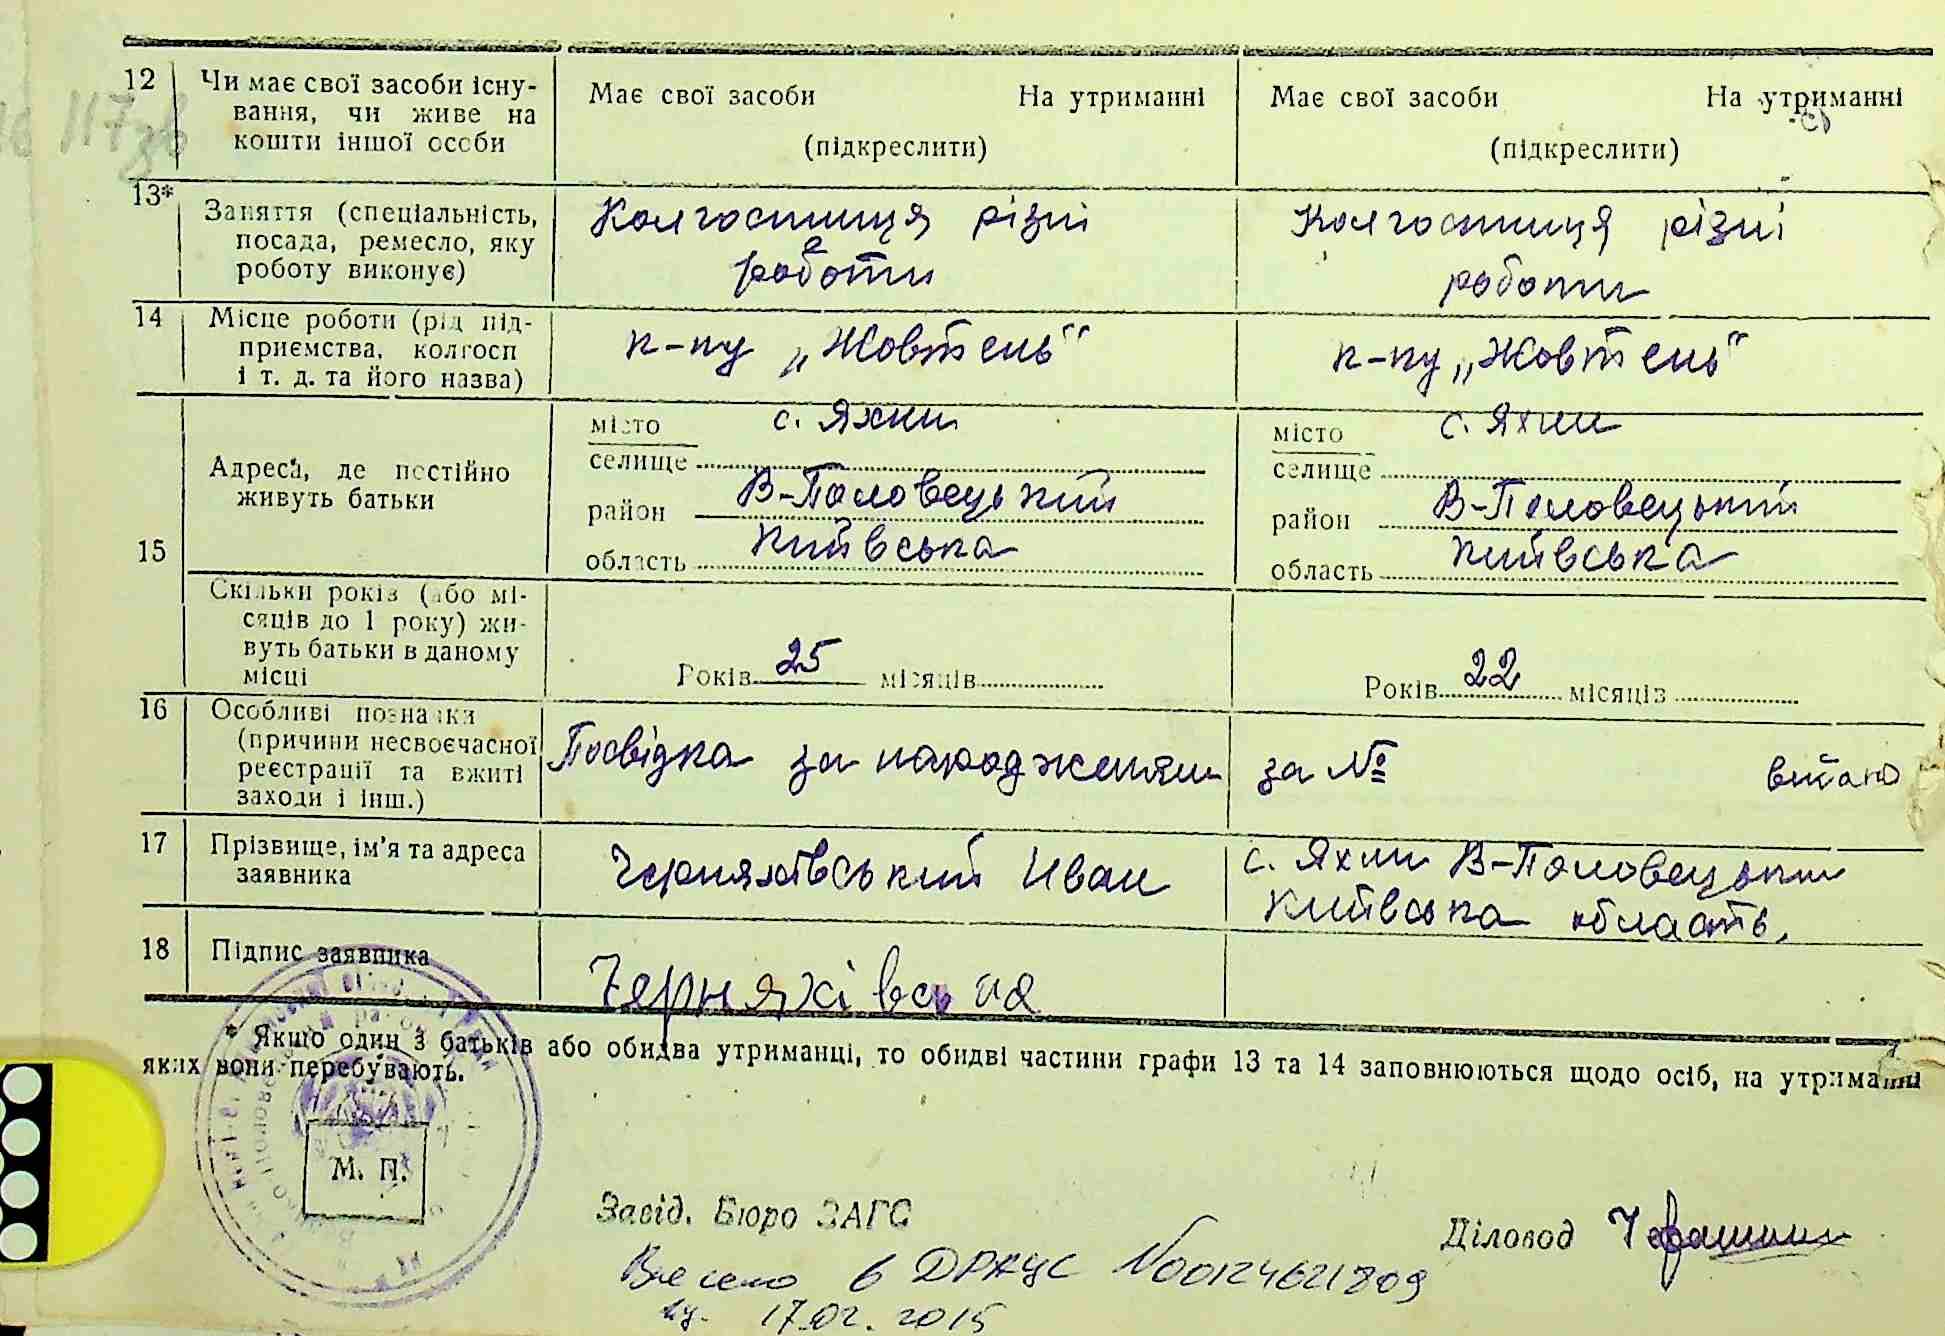 12 Чи має свої засоби існу-
вання, чи живе на
кошти іншої особи
Має свої засоби На утриманні
(підкреслити)
Має свої засоби На утриманні
(підкреслити)
117зв
13* Заняття (спеціальність,
посада, ремесло, яку
роботу виконує)
Колгоспниця різні
роботи
Колгоспниця різні
роботи
14 Місце роботи (рід під-
приємства, колгосп
і т. д. та його назва)
к-пу „Жовтень"
к-пу „Жовтень"
15 Адреса, де постійно
живуть батьки
місто с. Яхни
селище
район В-Половецький
область Київська
місто с. Яхни
селище
район В-Половецький
область Київська
Скільки років (або мі-
сяців до 1 року) жи-
вуть батьки в даному
місці
Років 25 місяців
Років 22 місяців
16 Особливі познаки
(причини несвоєчасної
реєстрації та вжиті
заходи і інш.)
Посвідка за народження за № видано
17 Прізвище, ім'я та адреса
заявника
Черняхівський Иван
с. Яхни В-Половецький
Київська область.
18 Підпис заявника
Черняхівська
* Якщо один з батьків або обидва утриманці, то обидві частини графи 13 та 14 заповнюються щодо осіб, на утриманні
яких вони перебувають.
М. П.
Завід. Бюро ЗАГС
Діловод
Внесено в ДРАЦС №00124621809
17.02.2015